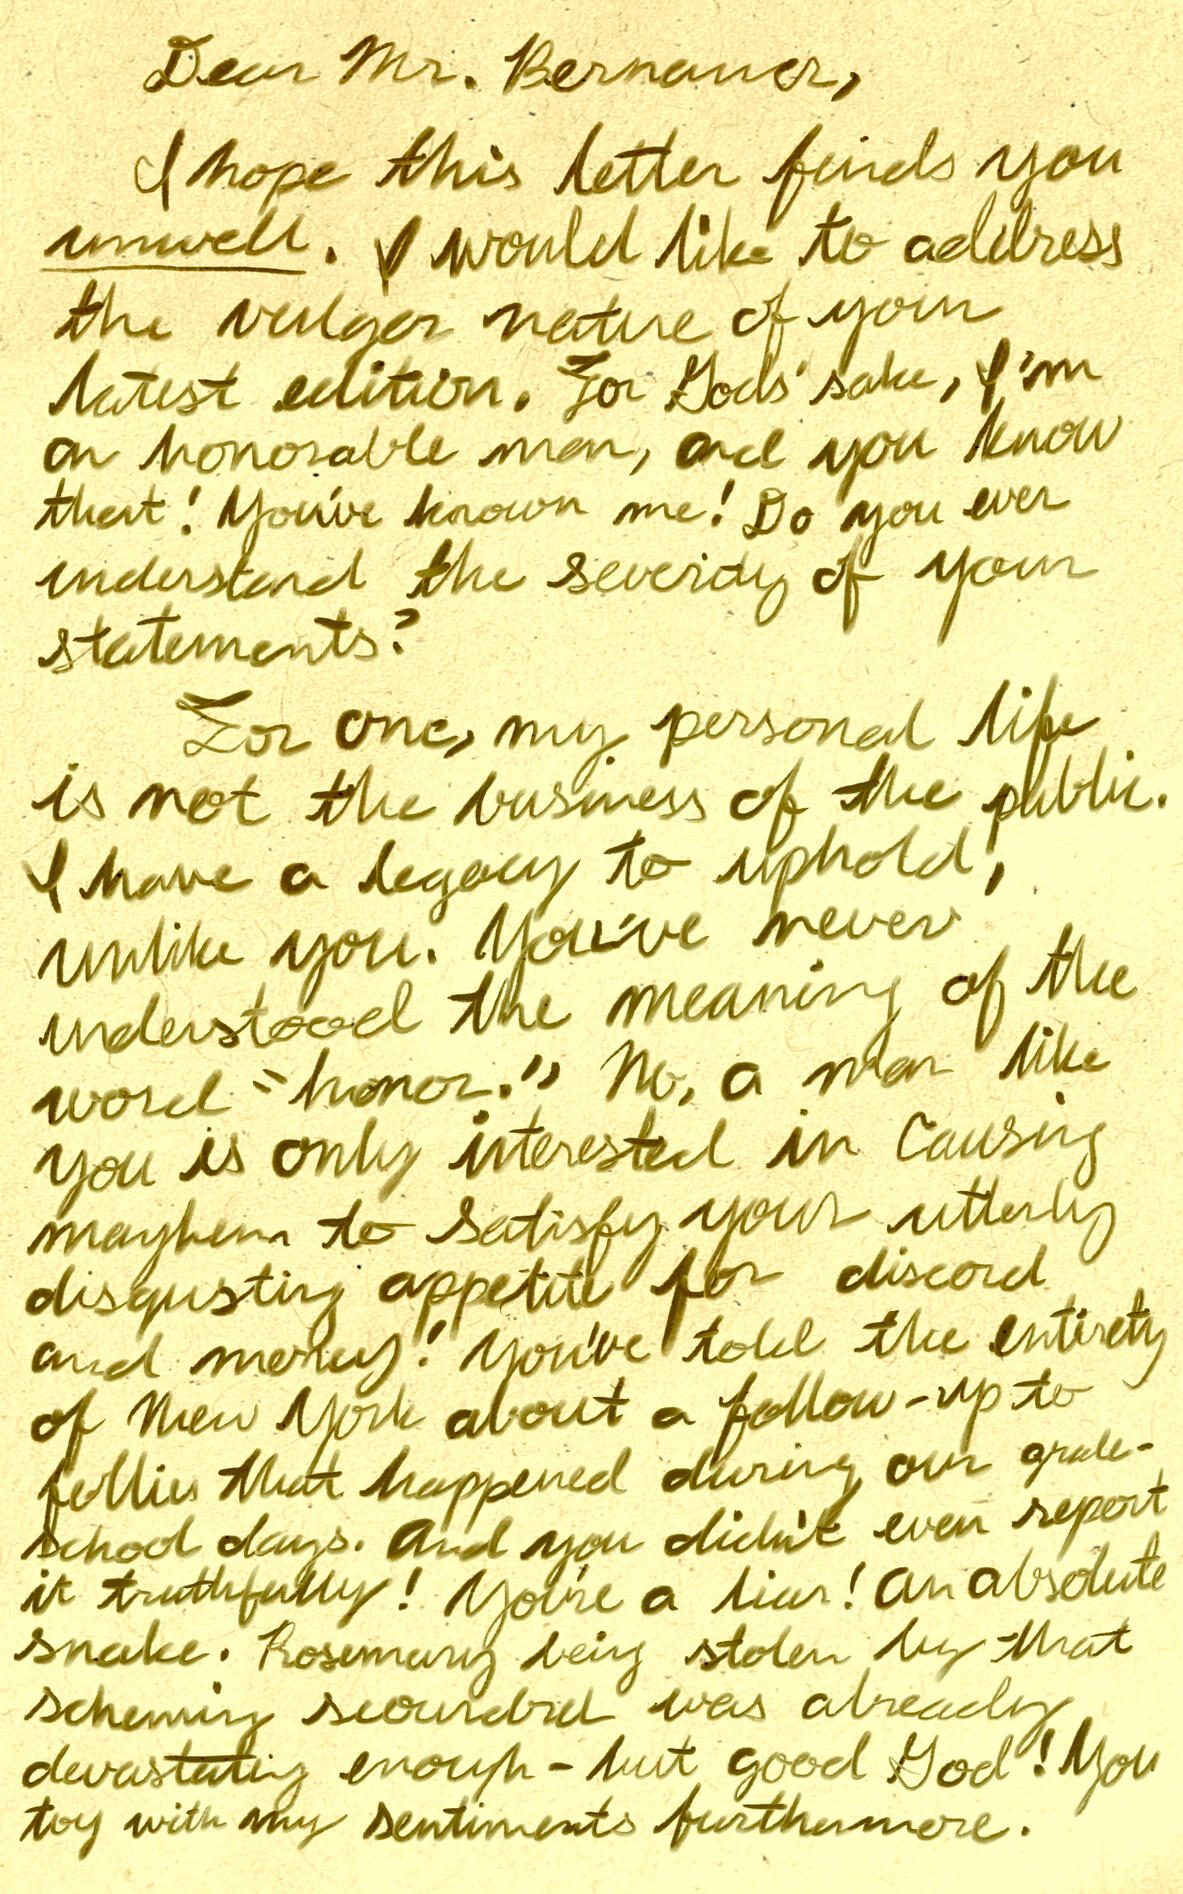 Dear Mr. Bernauer,
I hope this letter finds you
unwell. I would like to address
the vulgar nature of your
latest edition. For Gods' sake, I'm
an honorable man, and you know
that! You've known me! Do you ever
understand the severity of your
statements?
For one, my personal life
is not the business of the public.
I have a legacy to uphold,
unlike you. You've never
understood the meaning of the
word "honor." No, a man like
you is only interested in causing
mayhem to satisfy your utterly
disgusting appetite for discord
and money! You've told the entirety
of New York about a follow-up to
follies that happened during our grade-
school days. And you didn't even report
it truthfully! You're a liar! An absolute
snake. Rosemary being stolen by that
scheming scoundrel was already
devastating enough - but good God! You
toy with my sentiments furthermore.